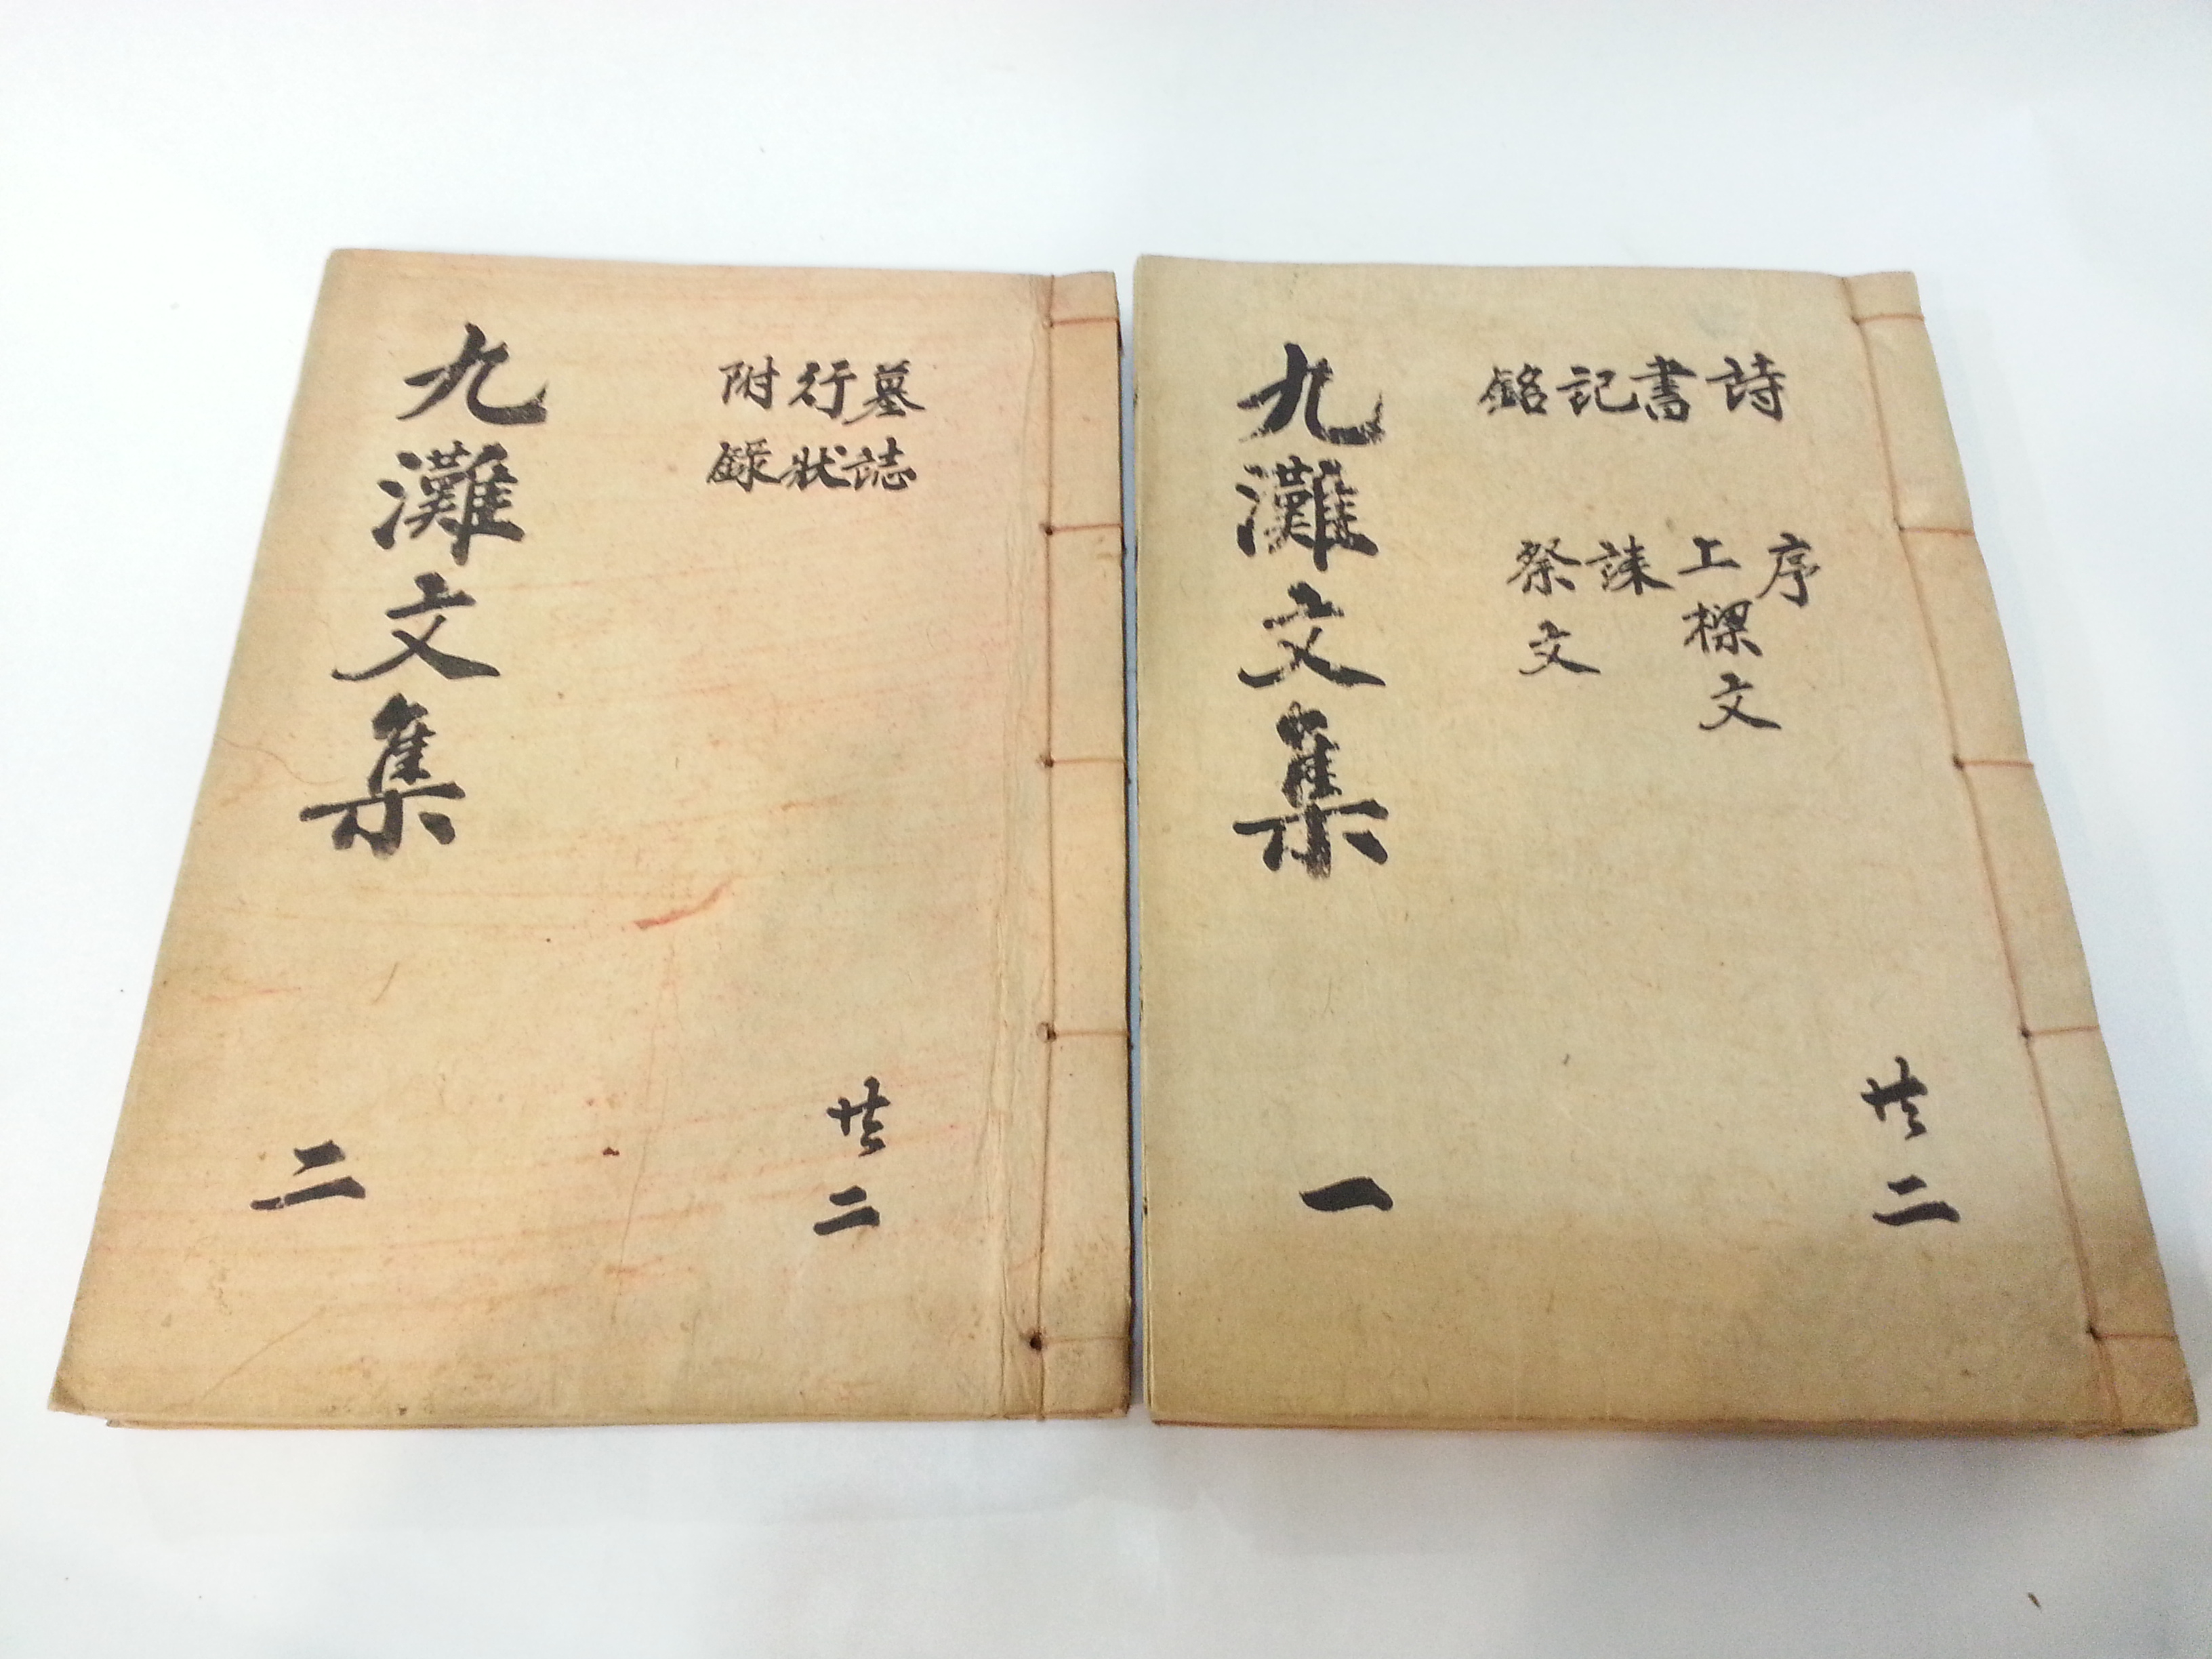 九灘文集
一
詩書記銘
序
上樑文
誄
祭文
共二
九灘文集
二
墓誌
行狀
附錄
共二